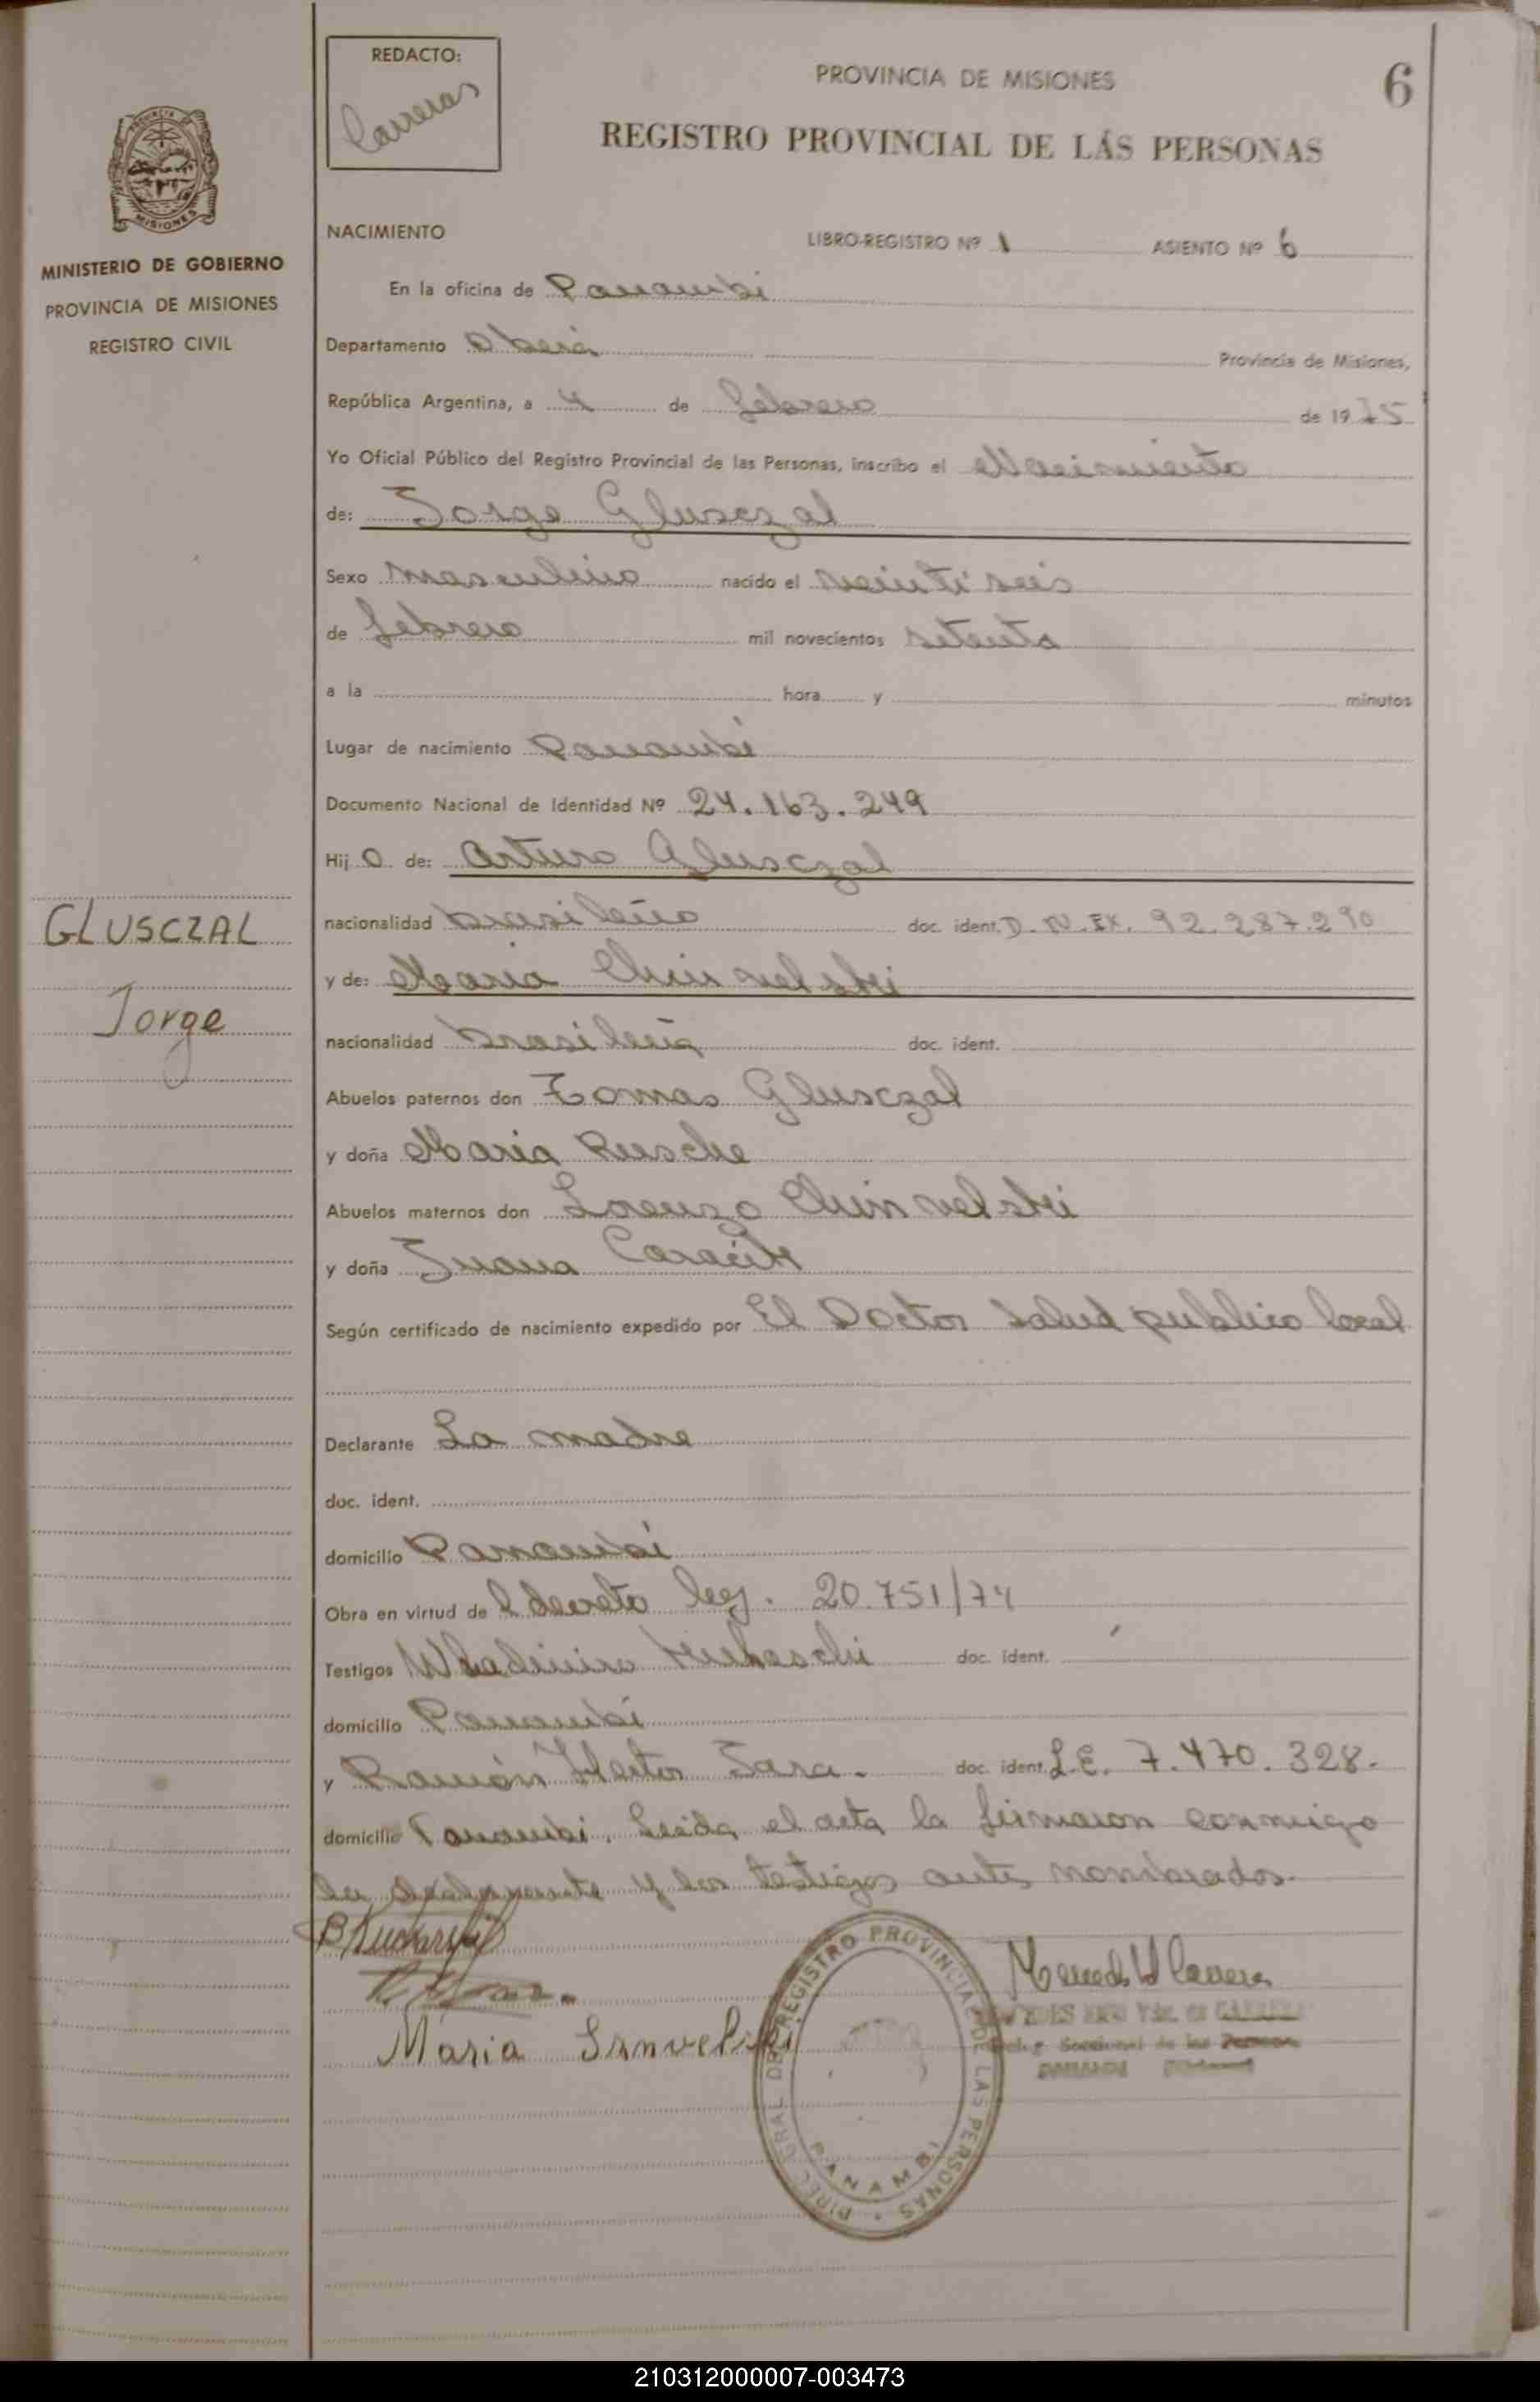 REDACTO:
Carreras
PROVINCIA DE MISIONES
6
REGISTRO PROVINCIAL DE LAS PERSONAS
PROVINCIA DE
MISIONES
MINISTERIO DE GOBIERNO
PROVINCIA DE MISIONES
REGISTRO CIVIL
NACIMIENTO LIBRO-REGISTRO Nº 1 ASIENTO Nº 6
En la oficina de Panambi
Departamento Oberá Provincia de Misiones,
República Argentina, a 4 de febrero de 1975
Yo Oficial Público del Registro Provincial de las Personas, inscribo el Nacimiento
de: Jorge Glusczal
Sexo masculino nacido el veintiseis
de febrero mil novecientos setenta
a la hora y minutos
Lugar de nacimiento Panambí
Documento Nacional de Identidad Nº 24.163.249
Hij o de: Arturo Glusczal
nacionalidad brasileño doc. ident. D.N.EX. 92.287.290
y de: Maria
nacionalidad brasileña doc. ident.
Abuelos paternos don Tomas Glusczal
y doña Maria
Abuelos maternos don Lorenzo
y doña Juana
Según certificado de nacimiento expedido por El Doctor Salud publica local
Declarante La madre
doc. ident.
domicilio Panambí
Obra en virtud del decreto ley. 20.751/74
Testigos doc. ident.
domicilio Panambí
y Ramón Hector Jara. doc. ident. L.E. 7.470.328.
domicilio Panambi. Leida el acta la firmaron conmigo
la declarante y los testigos antes nombrados.
Maria
GLUSCZAL
Jorge
DIREC. GRAL DE REGISTRO PROVINCIAL DE LAS PERSONAS
PANAMBI
210312000007-003473